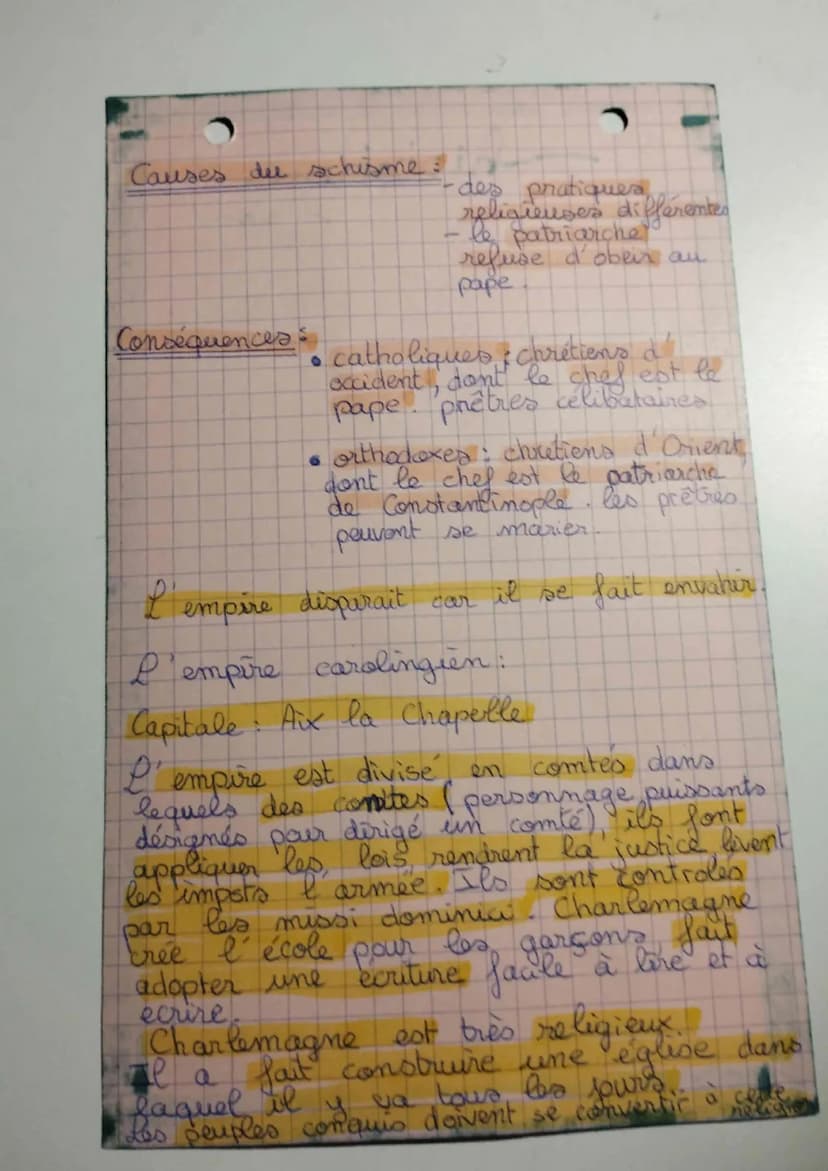 Causes du schisme :
- des pratiques
religieuses différentes
- le patriarche
refuse d'obeir au
pape.
Conséquences :
• catholiques : chrétiens d'
occident, dont le chef est le
pape. prêtres célibataires
• orthodoxes : chrétiens d'Orient,
dont le chef est le patriarche
de Constantinople. les prêtres
peuvent se marier.
L'empire disparait car il se fait envahir.
L'empire carolingien :
Capitale : Aix la Chapelle
L'empire est divisé en comtés dans
lequels des comtes (personnage puissants
désignés pour dirigé un comté) ils font
appliquer les lois, rendrent la justice, lèvent
les impots l'armée. Ils sont controlés
par les missi dominici. Charlemagne
crée l'école pour les garçons, fait
adopter une écriture facile à lire et à
ecrire.
Charlemagne est très religieux.
Il a fait construire une église dans
laquel il y va tous les jours.
Les peuples conquis doivent se convertir à cette
religion